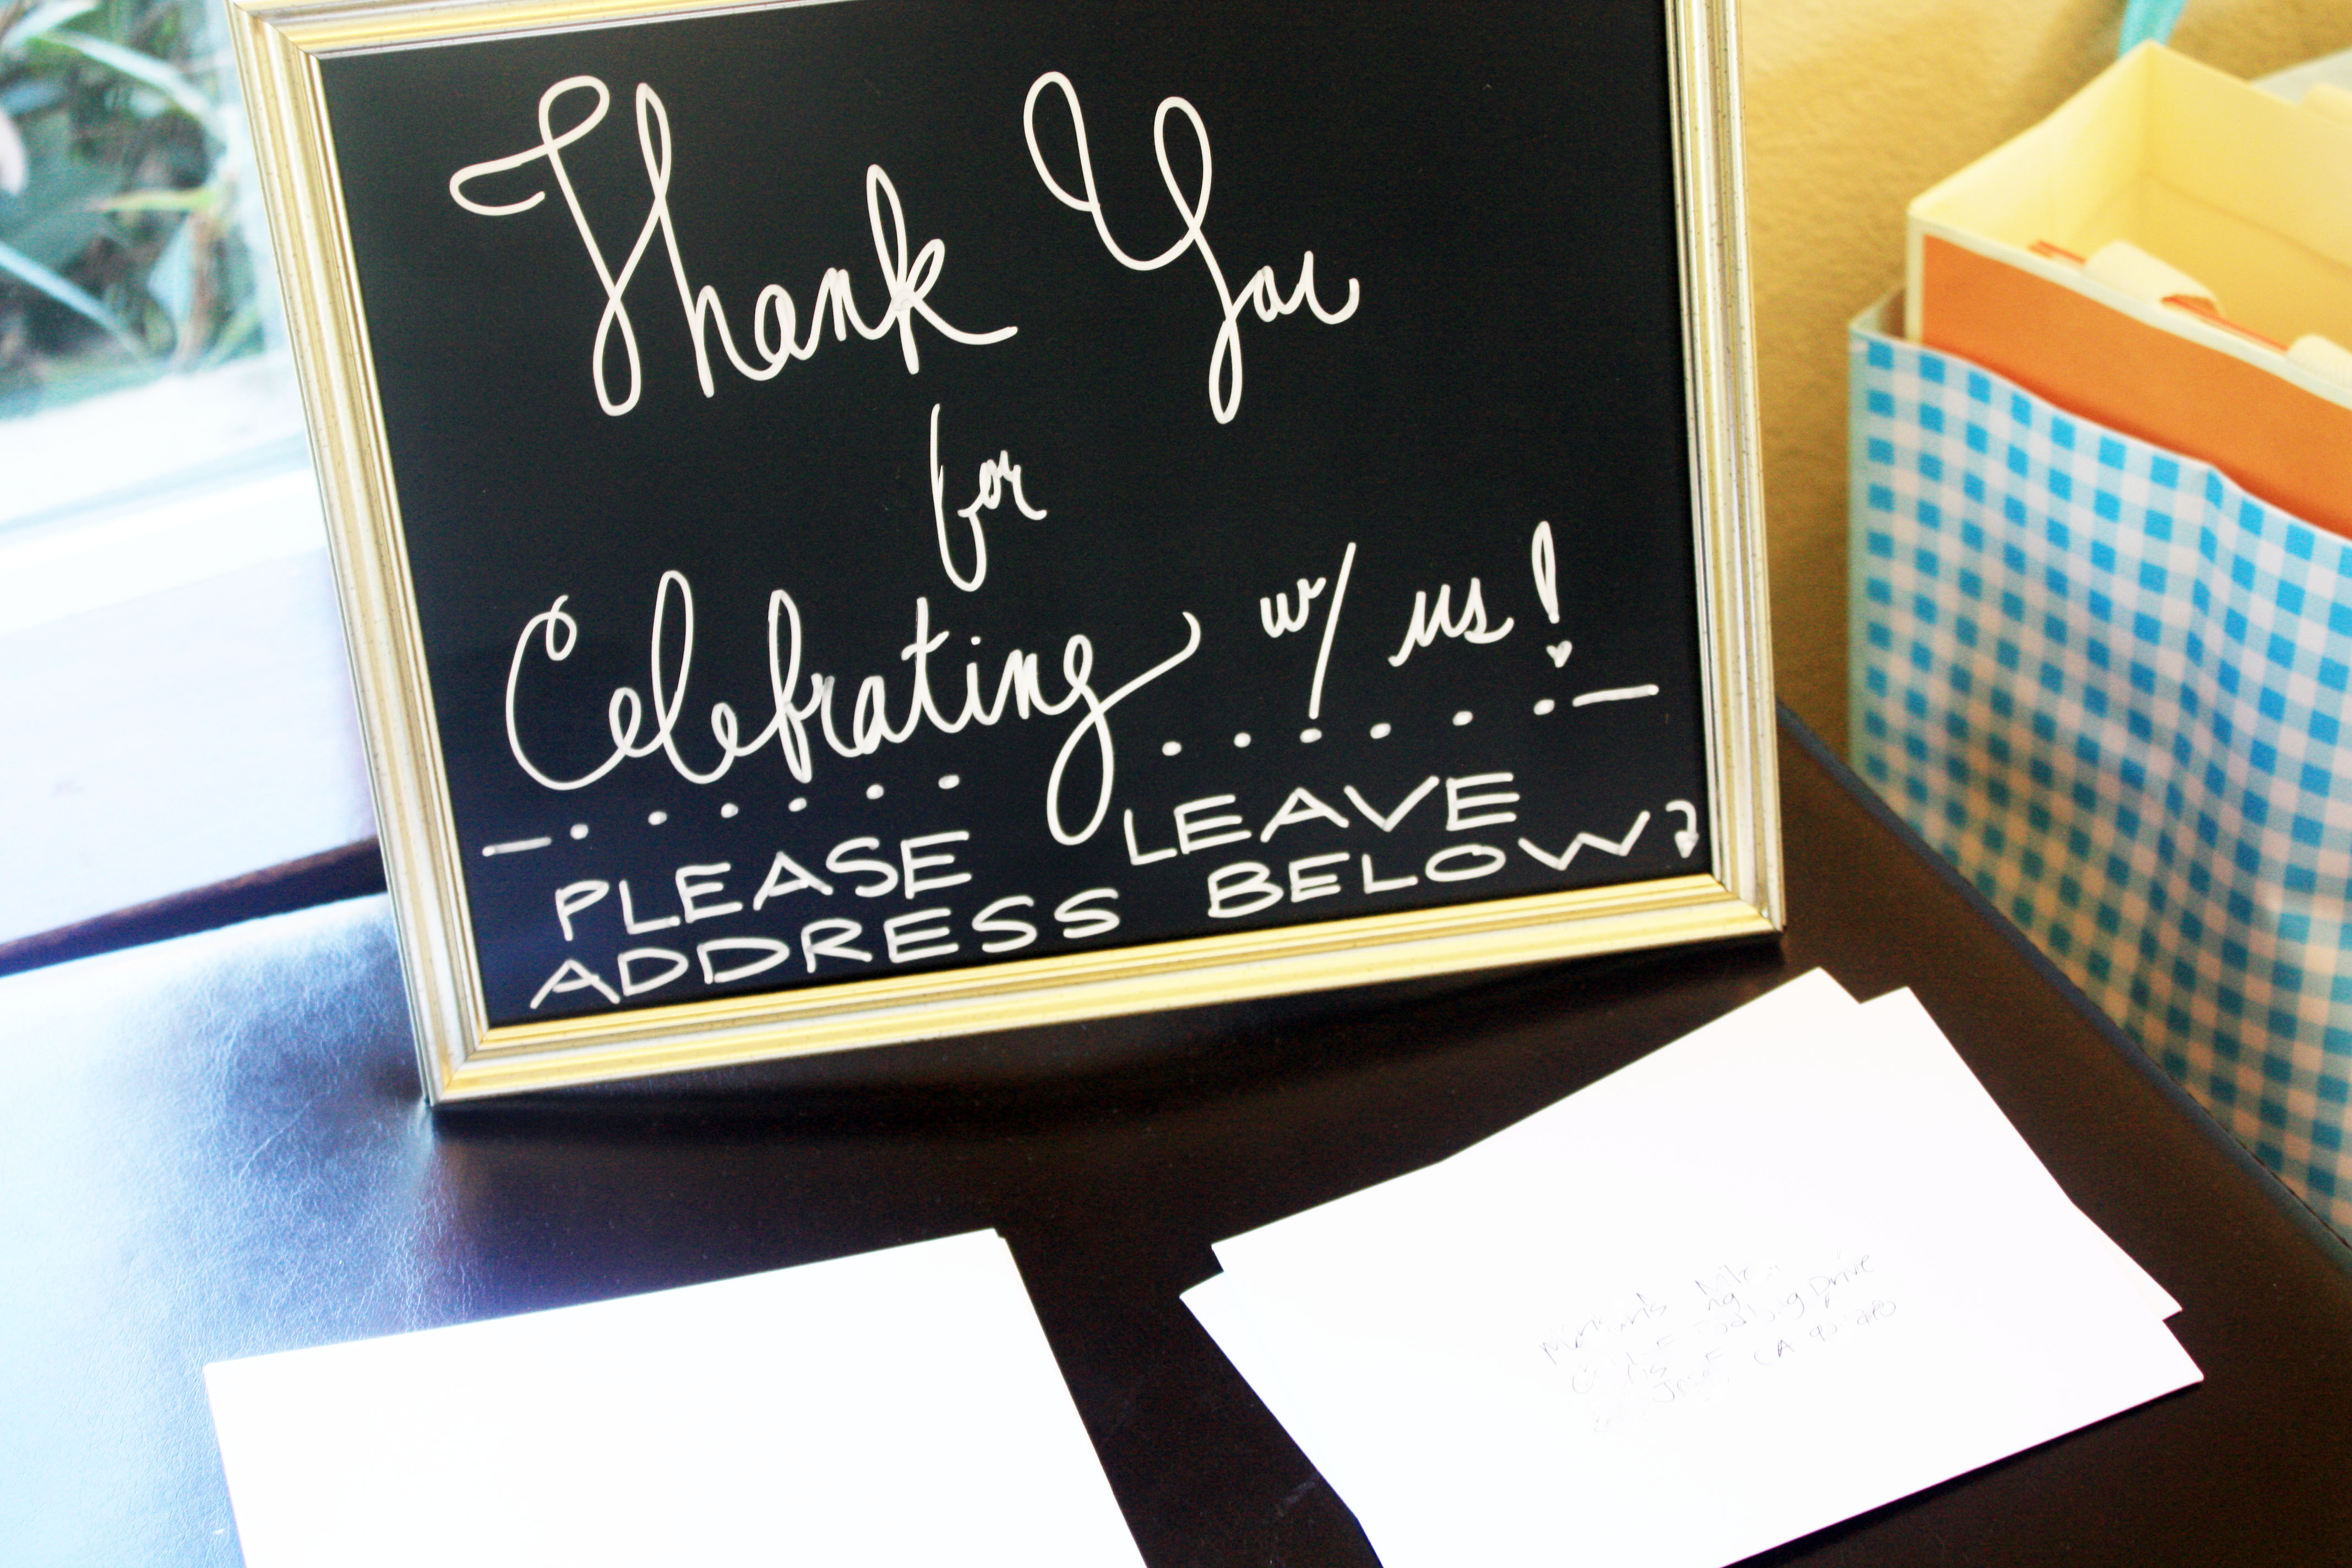 Thank You
for
Celebrating w/ us!
PLEASE LEAVE
ADDRESS BELOW
Drive
CA